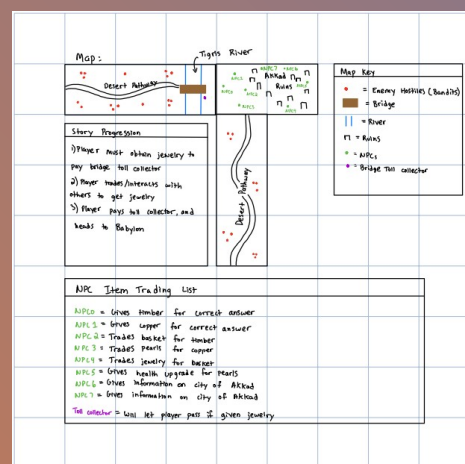 Map:
Tigris River
Desert Pathway
NPC7
NPC6
Akkad
Ruins
NPC5
Desert Pathway
Map Key
= Enemy Hostiles (Bandits)
= Bridge
= River
= Ruins
= NPCs
= Bridge Toll collector
Story Progression
1) Player must obtain jewelry to
pay bridge toll collector
2) Player trades/interacts with
others to get jewelry
3) Player pays toll collector, and
heads to Babylon
NPC Item Trading List
NPC0 = Gives timber for correct answer
NPC1 = Gives copper for correct answer
NPC2 = Trades basket for timber
NPC3 = Trades pearls for copper
NPC4 = Trades jewelry for basket
NPC5 = Gives health upgrade for pearls
NPC6 = Gives information on city of Akkad
NPC7 = Gives information on city of Akkad
Toll collector = Will let player pass if given jewelry